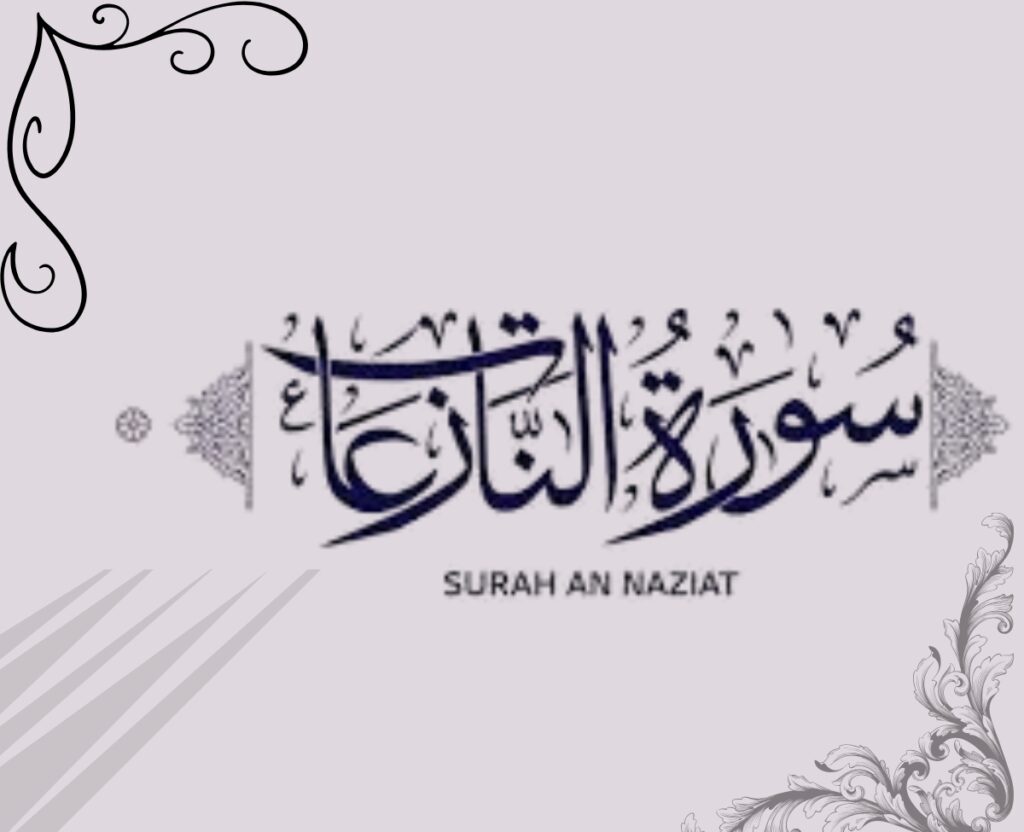 سُورَةُ النَّازِعَاتِ
SURAH AN NAZIAT